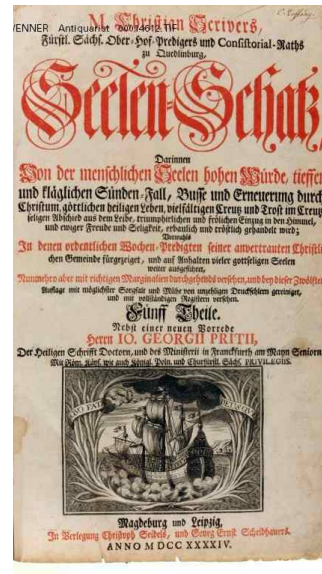 VENNER Antiquariat
M. Christian Scrivers,
Fürstl. Sächs. Ober-Hof-Predigers und Consistorial-Raths
zu Quedlinburg,
Seelen-Schatz,
Darinnen
Von der menschlichen Seelen hohen Würde, tieffen
und kläglichen Sünden-Fall, Busse und Erneuerung durch
Christum, göttlichen heiligen Leben, vielfältigen Creutz und Trost im Creutz
seligen Abschied aus dem Leibe, triumphirlichen und frölichen Einzug in den Himmel,
und ewiger Freude und Seligkeit, erbaulich und tröstlich gehandelt wird;
Vormahls
In denen ordentlichen Wochen-Predigten seiner anvertrauten Christli-
chen Gemeinde fürgezeiget, und auf Anhalten vieler gottseligen Seelen
weiter ausgeführet,
Nunmehro aber mit richtigen Marginalien durchgehends versehen, und bey dieser Zwölften
Auflage mit möglichster Sorgfalt und Mühe von unzehligen Druckfehlern gereiniget,
und mit vollständigen Registern versehen.
Fünff Theile.
Nebst einer neuen Vorrede
Herrn IO. GEORGII PRITII,
Der Heiligen Schrifft Doctorn, und des Ministerii in Franckfurth am Mayn Seniorn
Mit Röm. Käys. wie auch Königl. Poln. und Churfürstl. Sächs. PRIVILEGIIS.
Magdeburg und Leipzig,
In Verlegung Christoph Seidels, und Georg Ernst Scheidhauers.
ANNO M DCC XXXXIV.